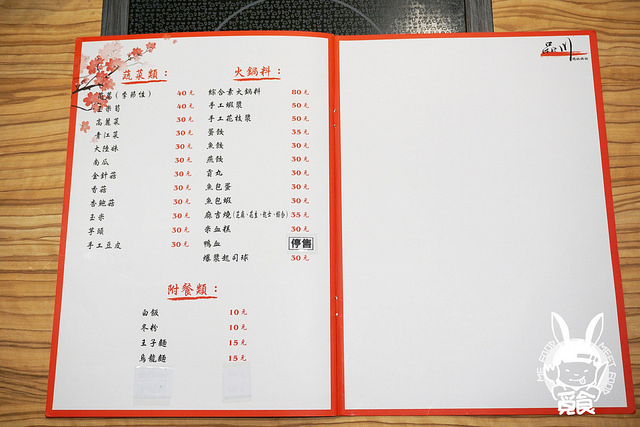 蔬菜類：
(季節性) 40元
玉米筍 40元
高麗菜 30元
青江菜 30元
大陸妹 30元
南瓜 30元
金針菇 30元
香菇 30元
杏鮑菇 30元
玉米 30元
芋頭 30元
手工豆皮 30元
火鍋料：
綜合素火鍋料 80元
手工蝦漿 50元
手工花枝漿 50元
蛋餃 35元
魚餃 30元
燕餃 30元
貢丸 30元
魚包蛋 30元
魚包蝦 30元
麻吉燒 35元
米血糕 30元
鴨血 停售
爆漿起司球 30元
附餐類：
白飯 10元
冬粉 10元
王子麵 15元
烏龍麵 15元
品川
MEE FOOD
MEET FOOD
覓食